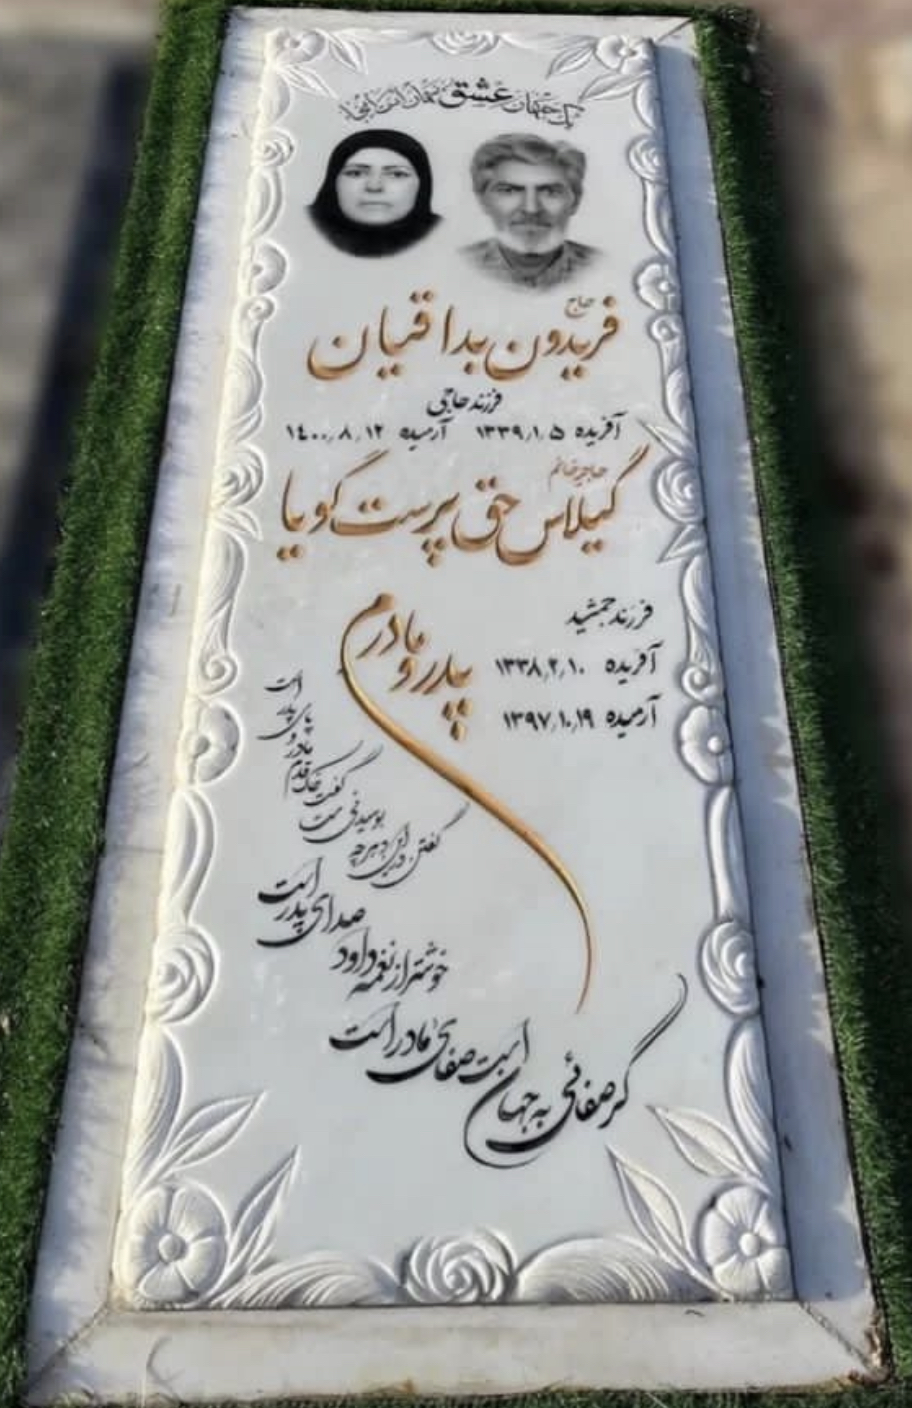 یک جهان عشق نهان است اینجا
حاج
فریدون بداقیان
فرزند حاجی
آفریده ۱۳۳۹/۱/۵ آرمیده ۱۴۰۰/۸/۱۲
حاجیه خانم
گیلاس حق پرست گویا
فرزند جمشید
آفریده ۱۳۳۸/۲/۱۰
آرمیده ۱۳۹۷/۱۰/۱۹
پدر و مادرم
گر صفائی به جهان است صفای مادر است
خوشتر از نغمه داود
صدای پدر است
گفتن در این دهر چه
بوسیدنی ست
گفت خاک قدم
مادر و
پای پدر
است